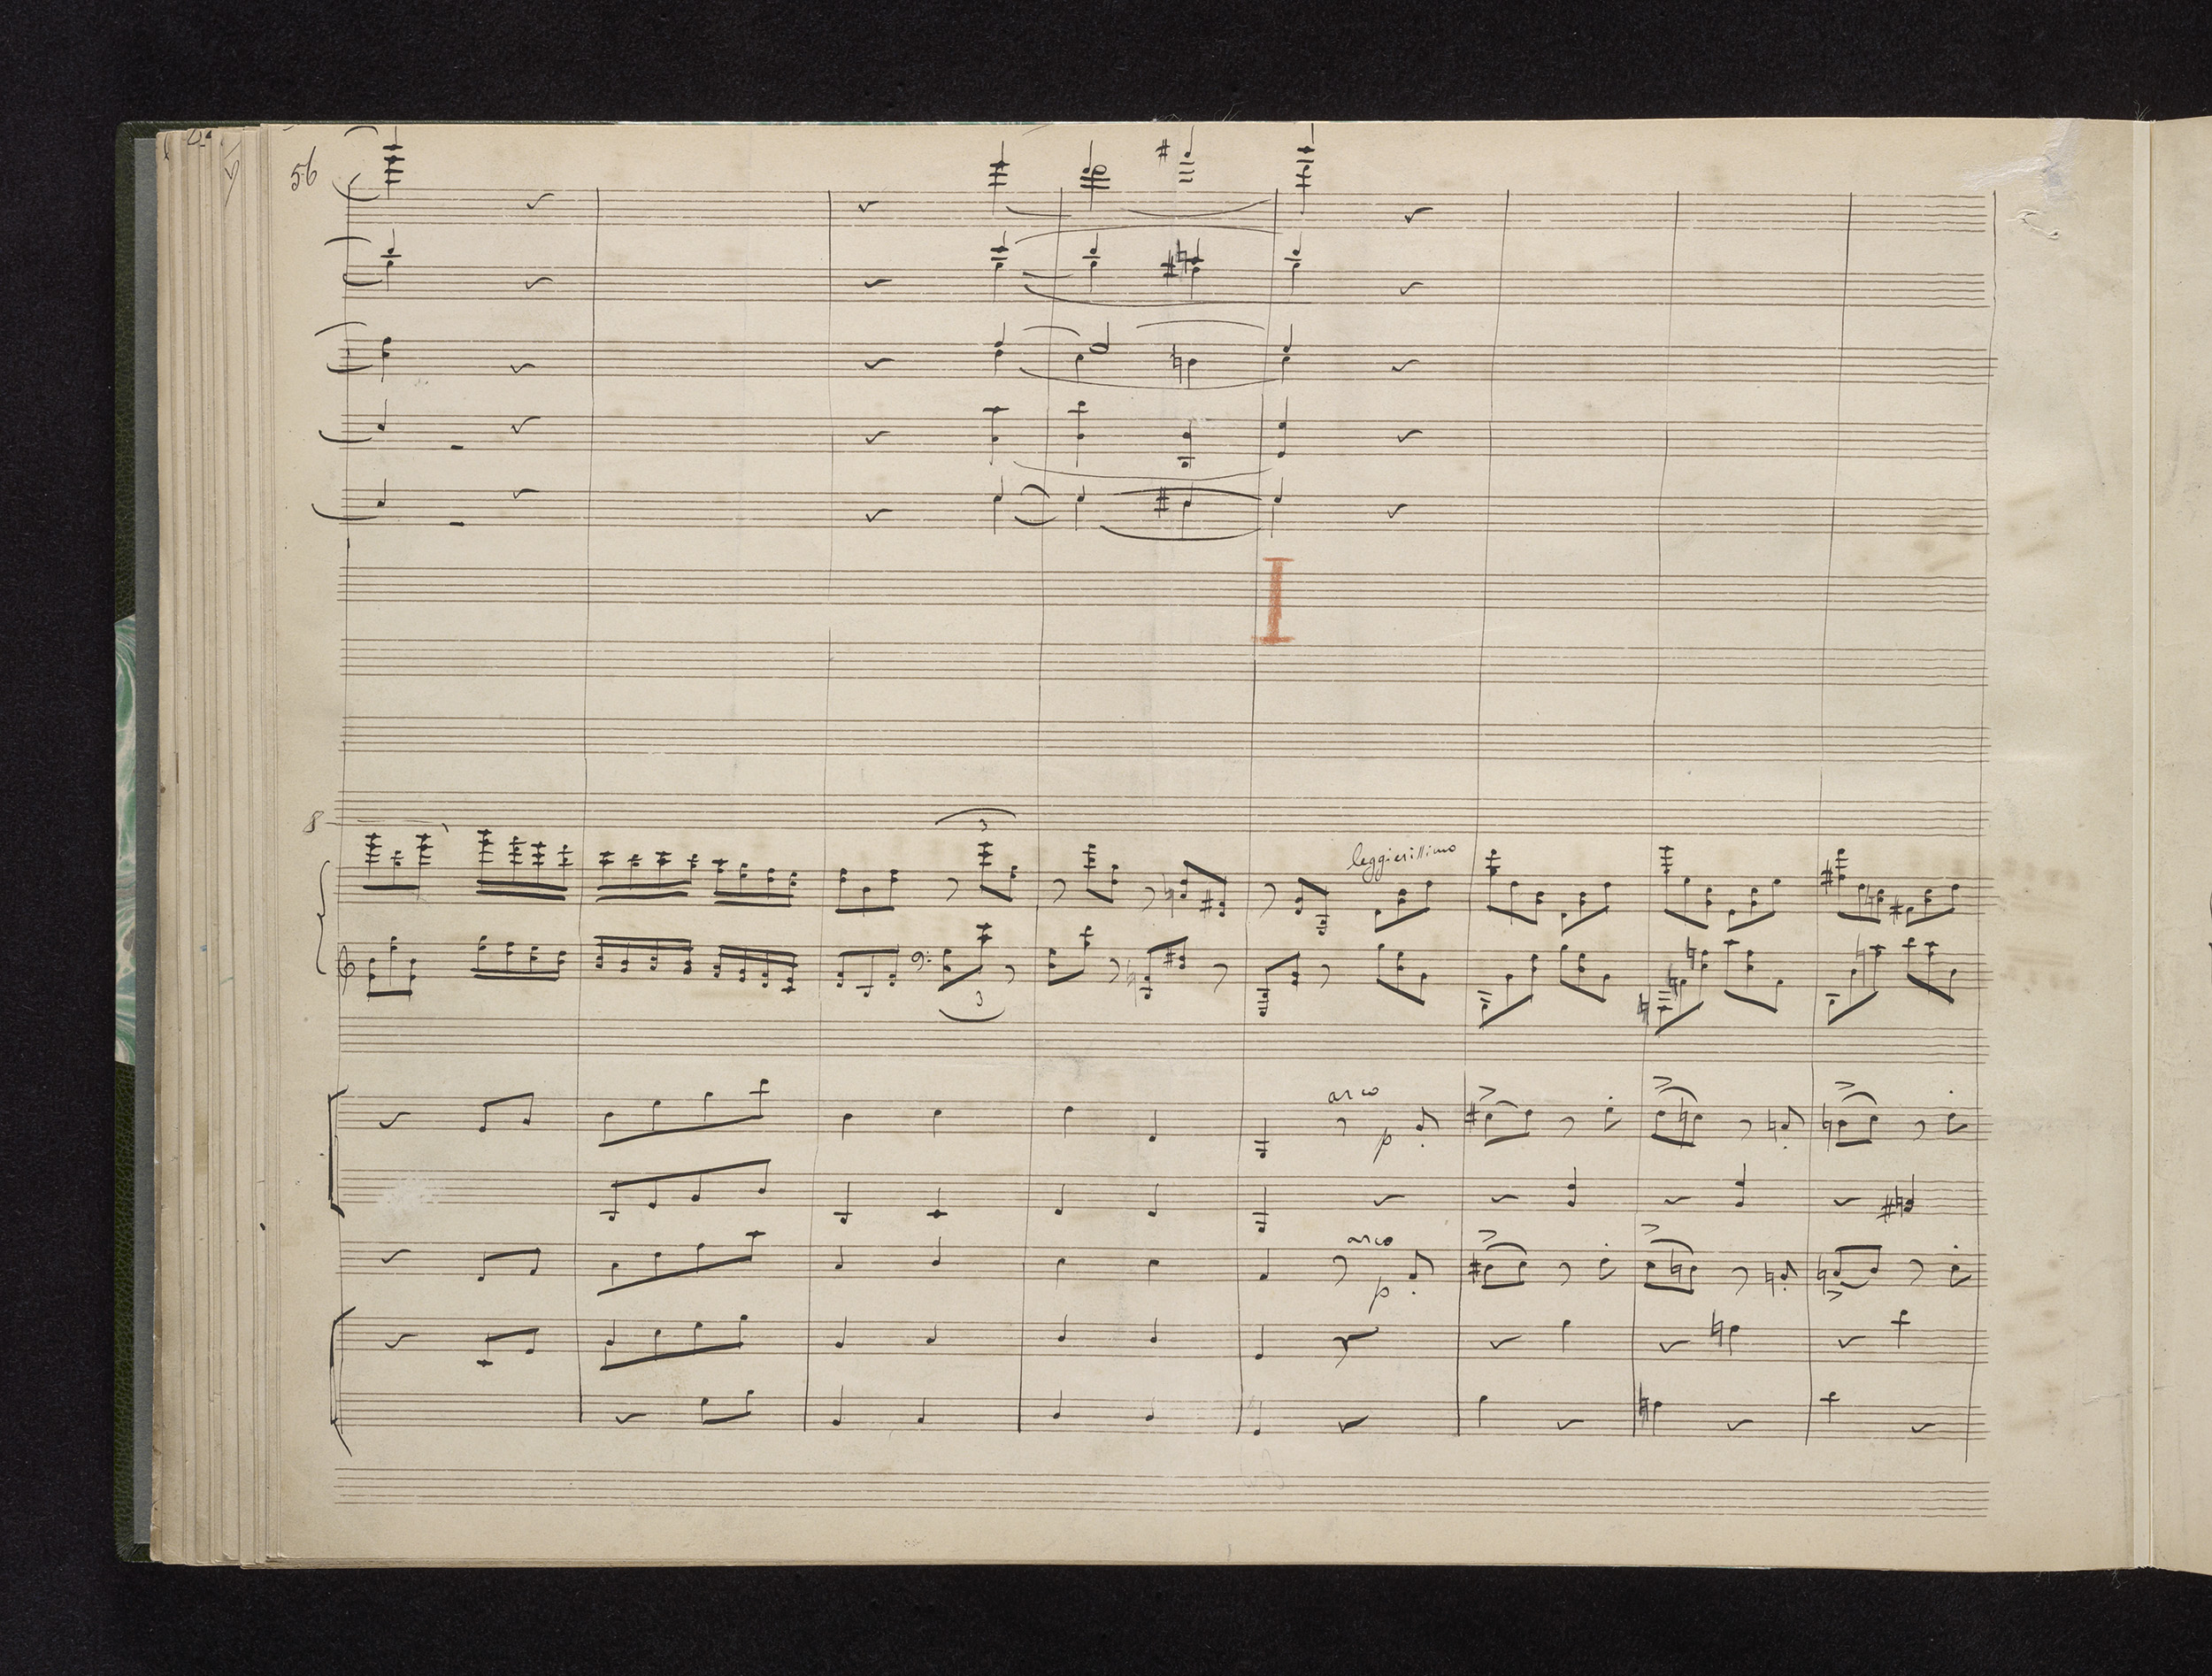 56
I
8
3
leggierissimo
3
arco
p
arco
p